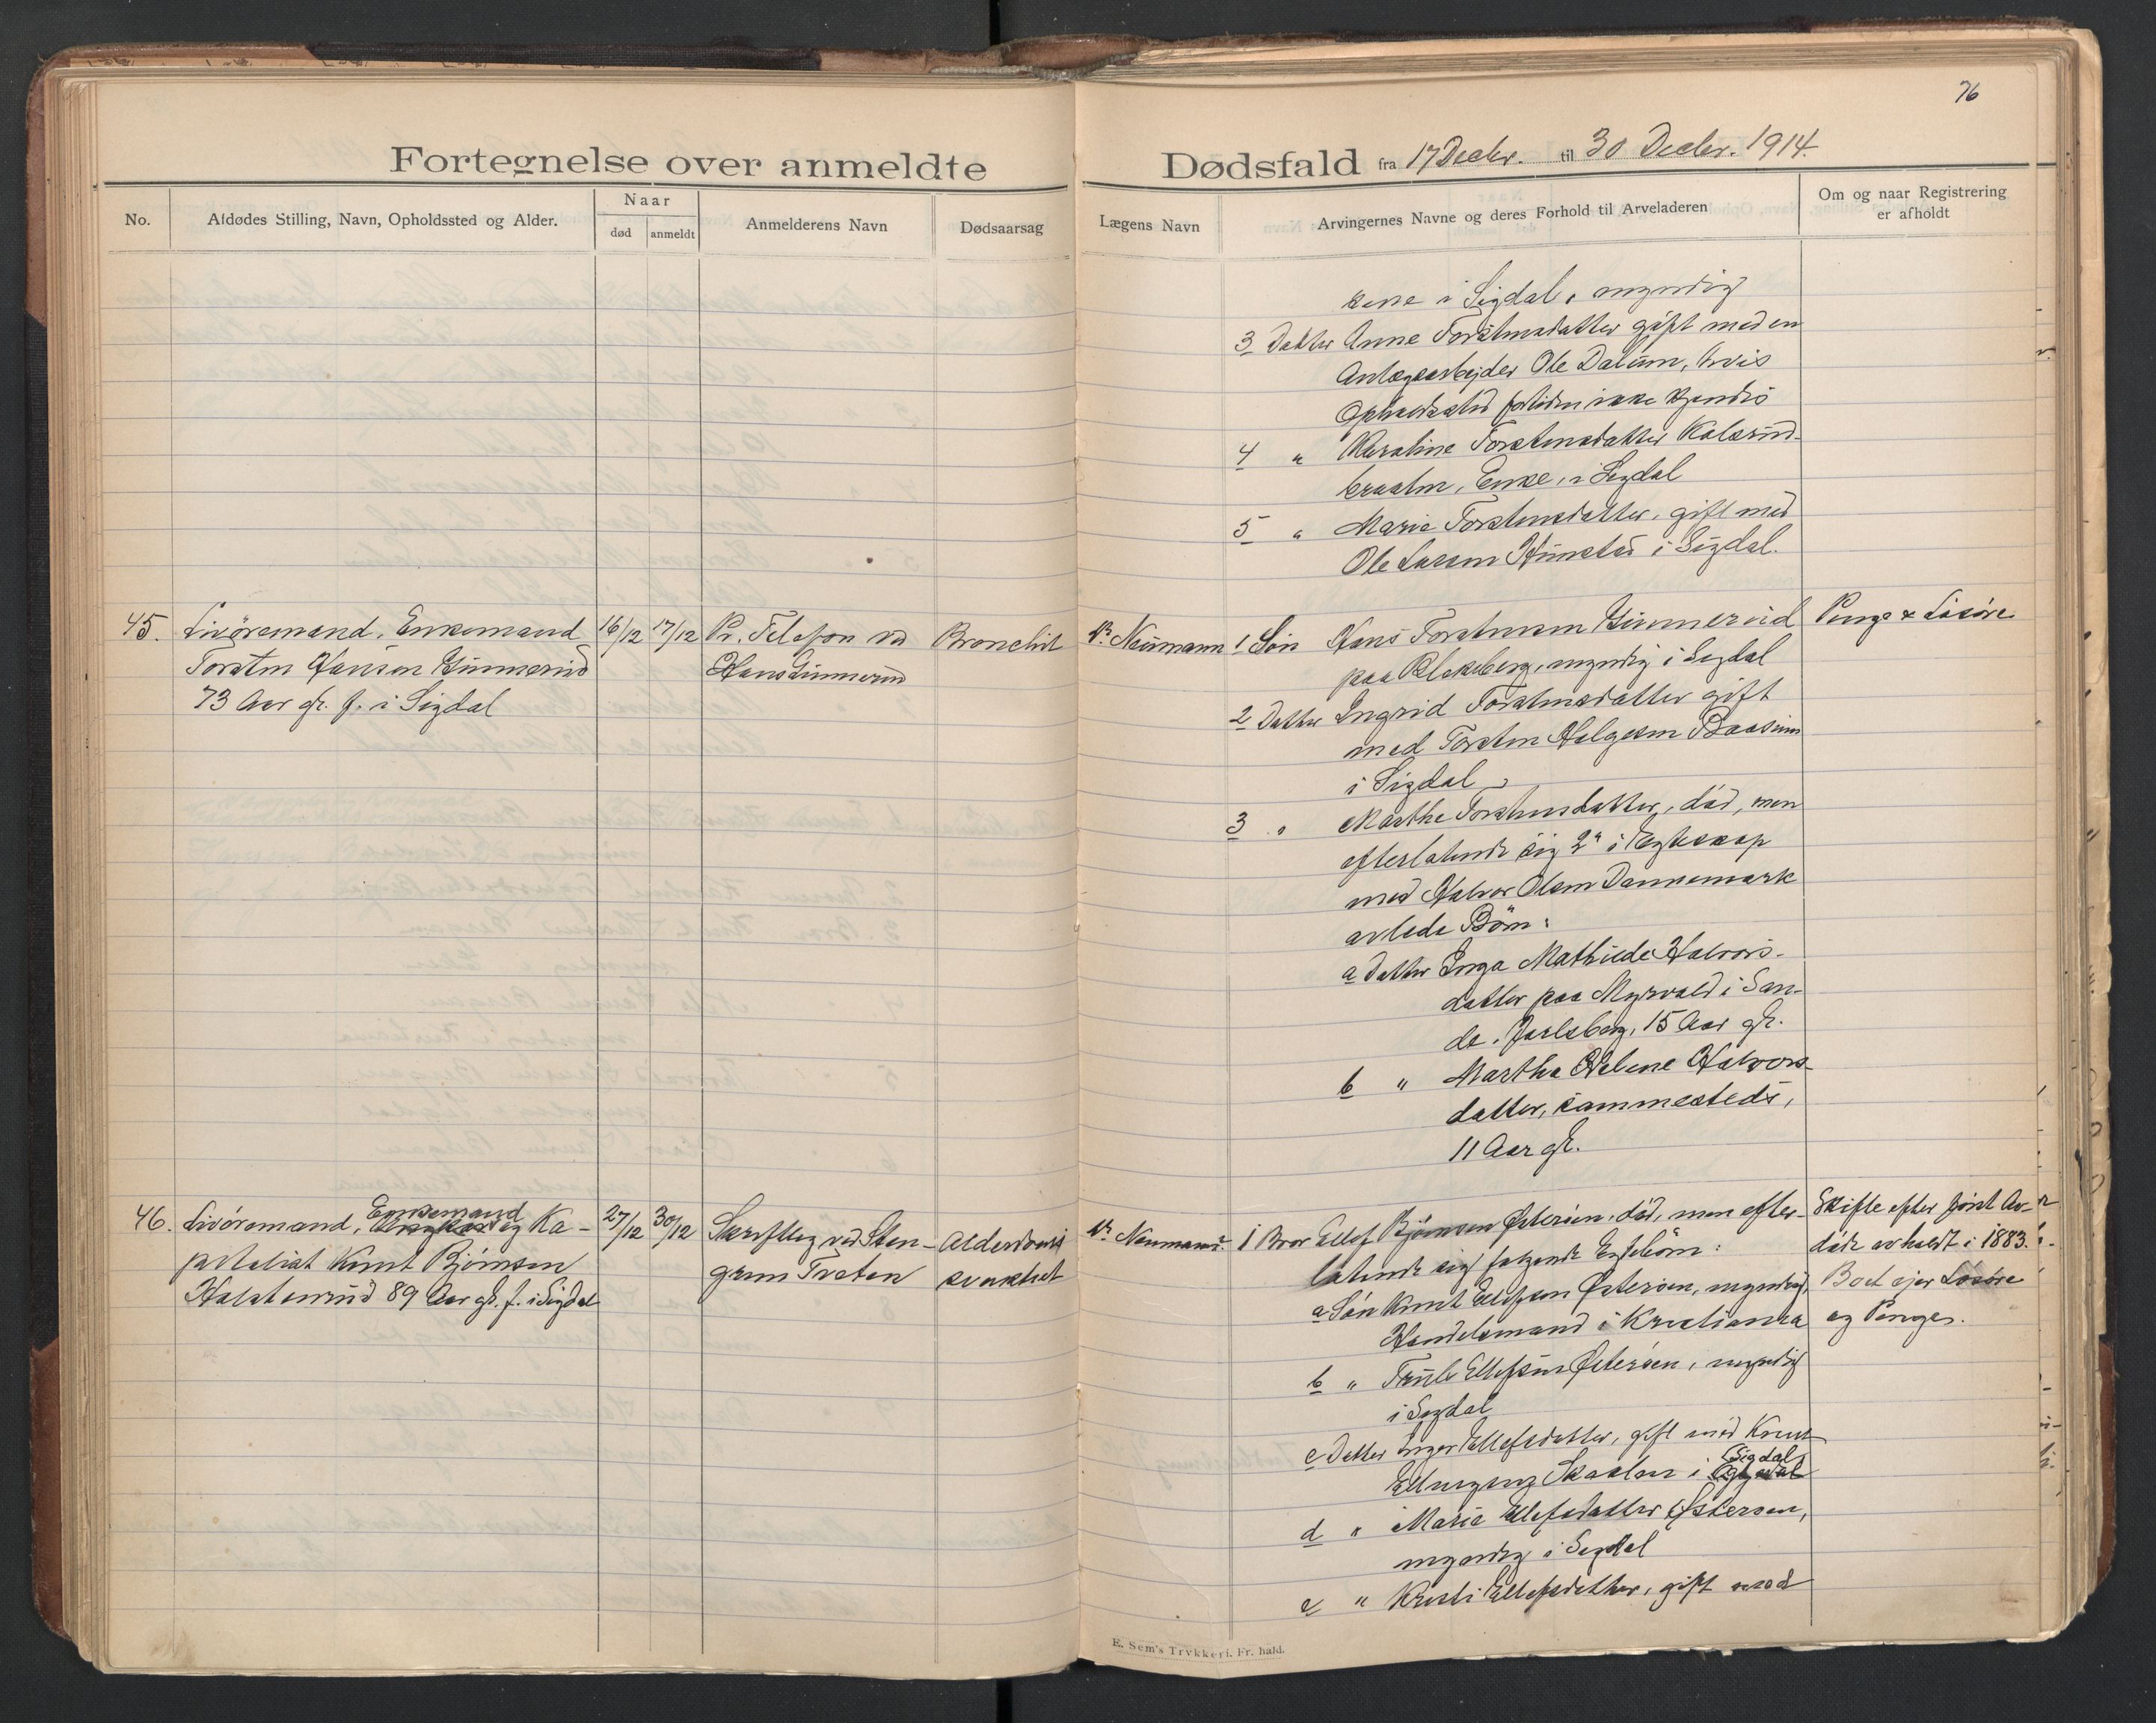 76
Fortegnelse over anmeldte Dødsfald fra 17 Decbr. til 30 Decbr. 1914.
No.
Afdødes Stilling, Navn, Opholdssted og Alder.
Naar
død
anmeldt
Anmelderens Navn
Dødsaarsag
Lægens Navn
Arvingernes Navne og deres Forhold til Arveladeren
Om og naar Registrering
er afholdt
kene i Sigdal, myndig
3 Datter Anne Torstensdatter gift med en
Anlægsarbejder Ole Dalum, hvis
Opholdssted fortiden ikke kjendes
4 " Karoline Torstensdatter Kolsrud-
braaten, Enke, i Sigdal
5 " Marie Torstensdatter, gift med
Ole Larsen Hunstad i Sigdal.
45. Livöremand, Enkemand
Torsten Hansen Gunnerud
73 Aar gl. f. i Sigdal
16/12 17/12
Pr. Telefon ved
Hans Gunnerud
Bronchit
Dr. Neumann
1 Søn Hans Torstensen Gunnerud
paa Blekeberg, myndig i Sigdal
2 Datter Ingrid Torstensdatter gift
med Torsten Helgesen Baasum
i Sigdal
3 " Marthe Torstensdatter, död, men
efterlatende sig 2de i Egteskap
med Halvor Olsen Dannemark
avlede Börn:
a Datter Inga Mathilde Halvors-
datter paa Myrvold i San-
de, Jarlsberg, 15 Aar gl.
b " Martha Helene Halvors-
datter, sammesteds,
11 Aar gl.
Penge & Lösöre
46. Livöremand, Enkemand og Ka-
pitalist Knut Björnsen
Halstenrud 89 Aar gl. f. i Sigdal
27/12 30/12
Skriftlig ved Sten-
grim Tveten
Alderdoms
svakhet
Dr. Neumann
1 Bror Ellef Björnsen Østeröen, död, men efter-
latende sig følgende Egtebörn:
a Sön Knut Ellefsen Østeröen, myndig,
Handelsmand i Kristiania
b " Truls Ellefsen Østeröen, myndig
i Sigdal
c Datter Inger Ellefsdatter, gift med Knut
Skalien i Sigdal
d " Marie Ellefsdatter Østeröen,
myndig i Sigdal
e " Kristi Ellefsdatter, gift med
Skifte efter først Av-
döde avholdt i 1883.
Boet ejer Lösöre
og Penger.
E. Sem's Trykkeri, Fr. hald.